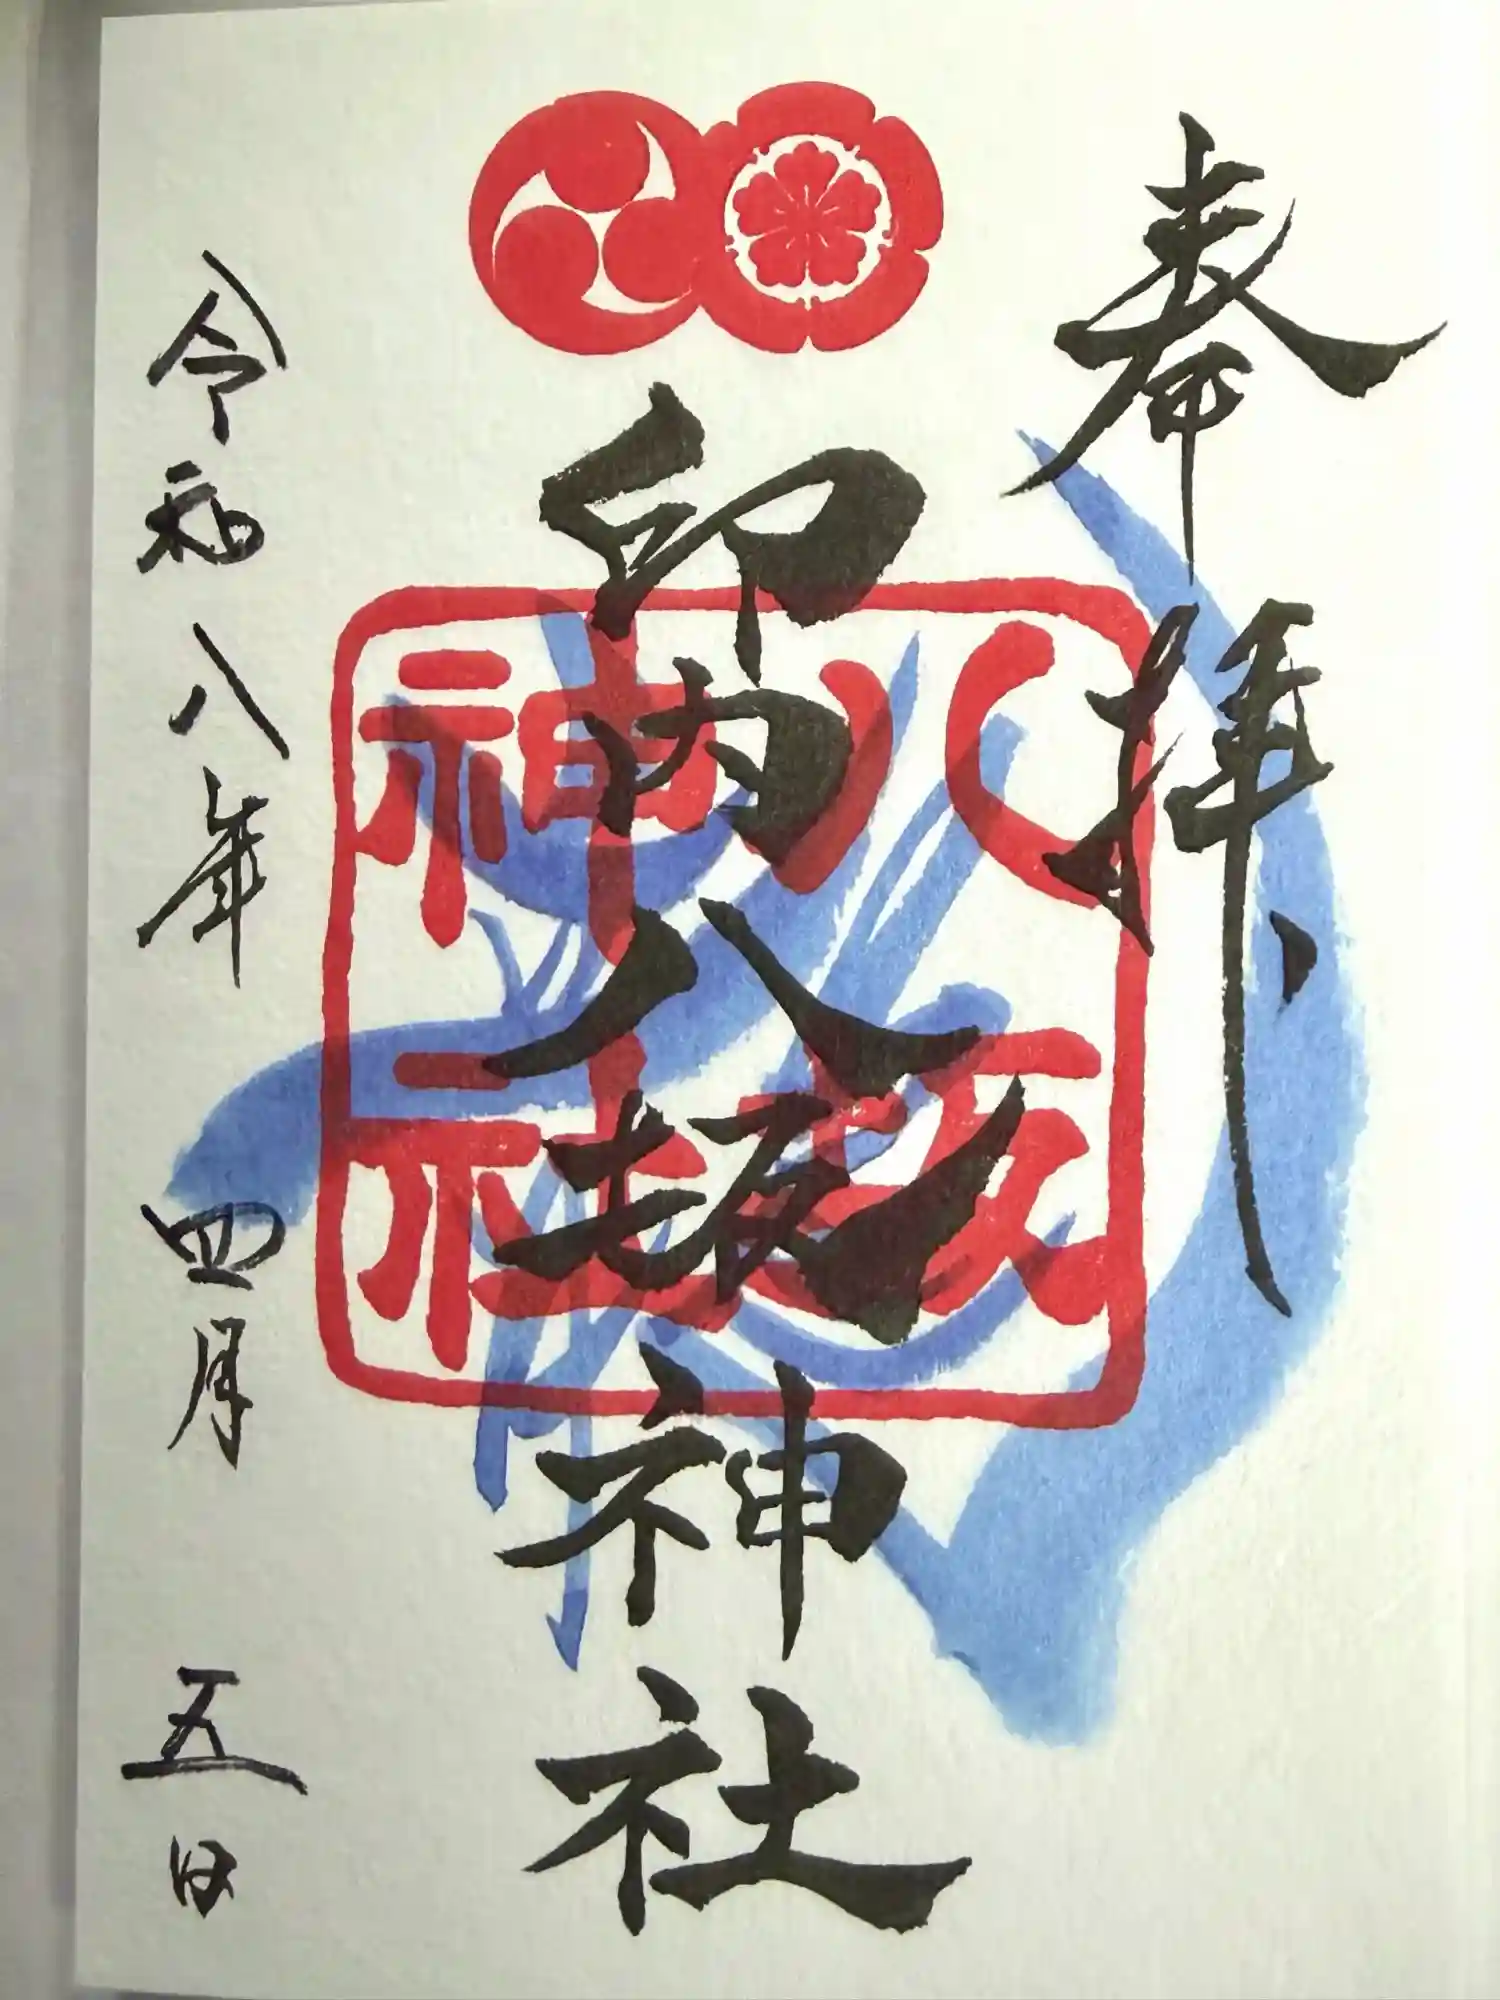 奉拝
印内八坂神社
八坂
神社
令和八年四月五日